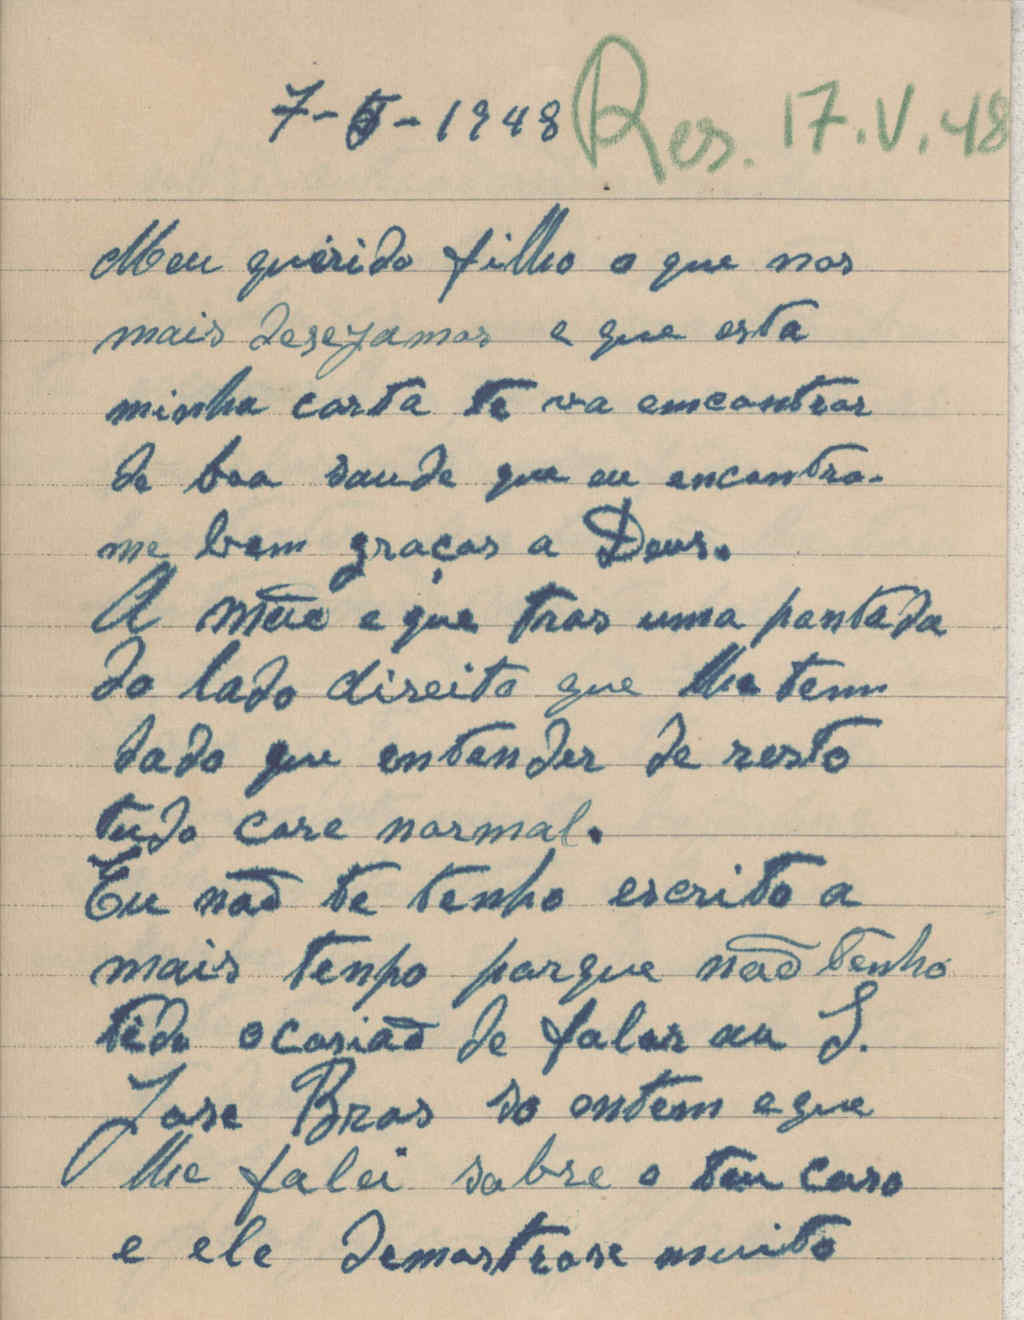 7-5-1948 Res. 17.V.48
Meu querido filho o que nos
mais desejamos e que esta
minha carta te va emcontrar
de boa saude que eu encontro-
me bem graças a Deus.
A mãe e que tras uma pontada
do lado direito que lhe tem
dado que entender de resto
tudo core normal.
Eu não te tenho escrito a
mais tenpo porque não tenho
tido ocasião de falar au S.
Jose Bras so ontem eque
lhe falei sobre o teu caso
e ele demostrose muito